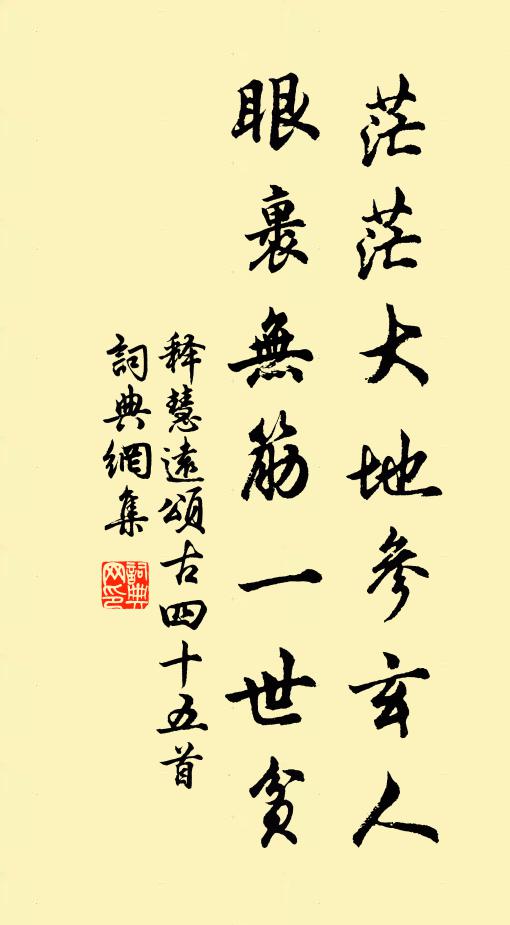 茫茫大地參玄人
眼裏無筋一世貧
释慧遠頌古四十五首
詞典網集
詞典网印